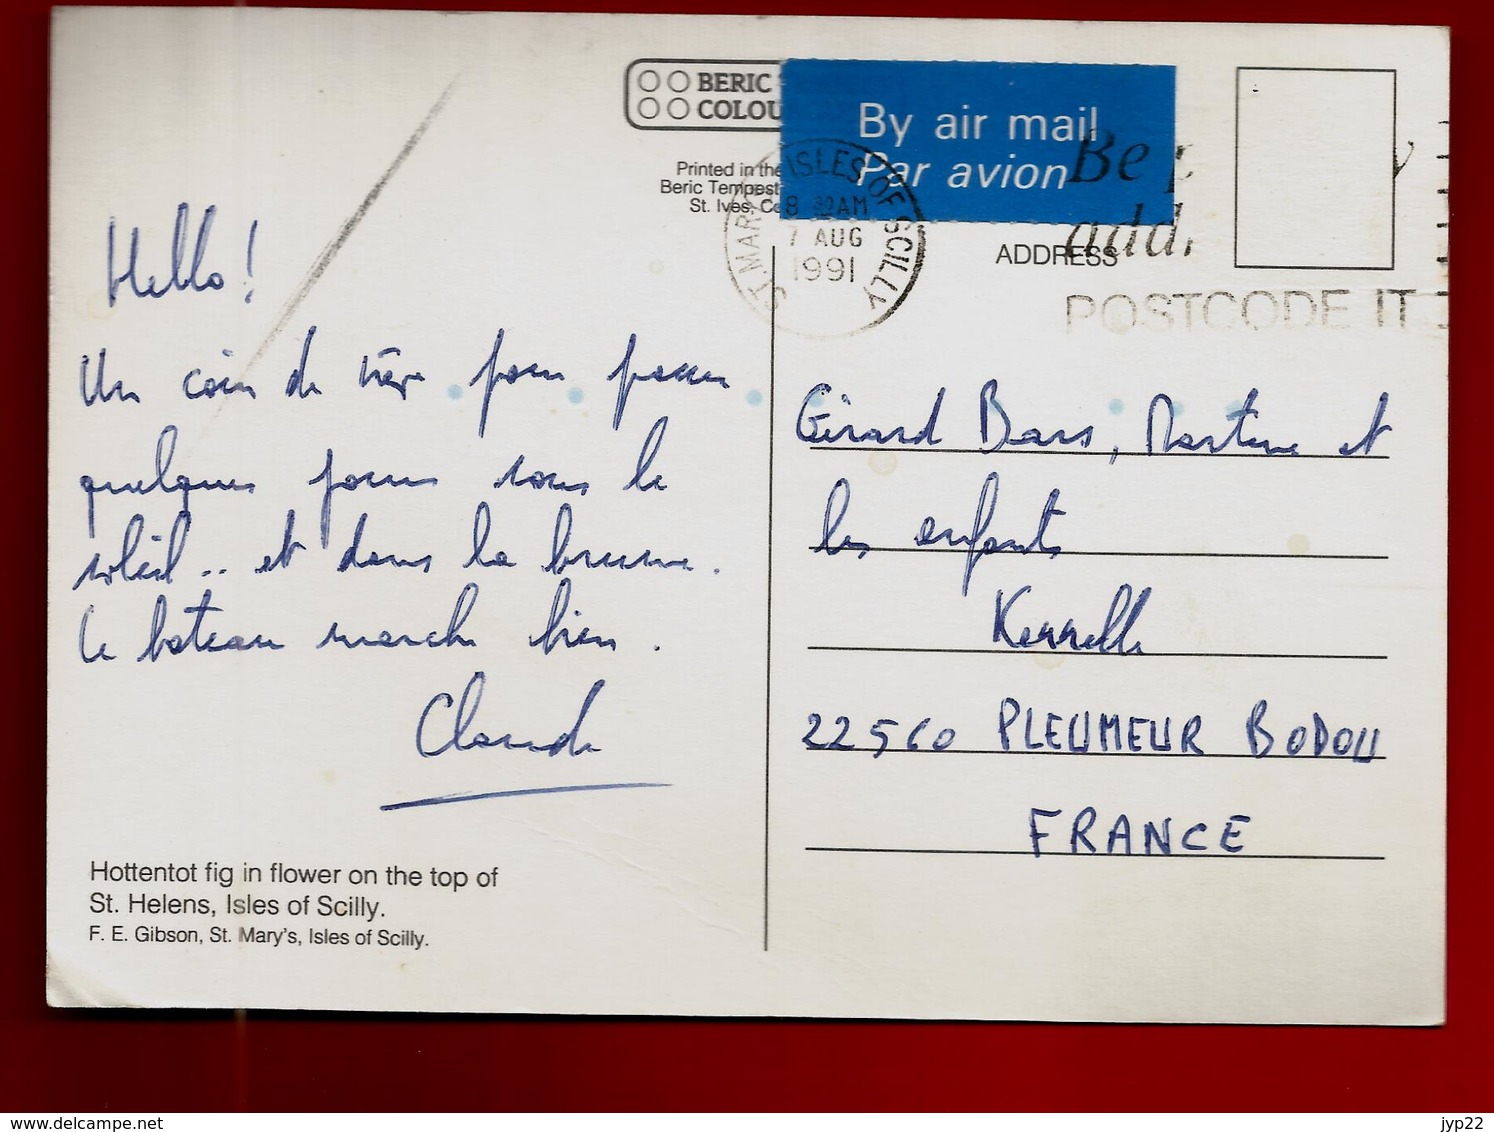 BERIC
COLOU
By air mail
Par avion
Printed in the
Beric Tempest
St. Ives, Co
ST. MARY ISLES OF SCILLY
8 30AM
7 AUG
1991
Be p y
add
POSTCODE IT
ADDRESS
Hello !
Un coin de rêve pour passer
quelques jours sous le
soleil .. et dans la brume.
Le bateau marche bien .
Claude
Gérard Bars, Martine et
les enfants
22560 PLEUMEUR BODOU
FRANCE
Hottentot fig in flower on the top of
St. Helens, Isles of Scilly.
F. E. Gibson, St. Mary's, Isles of Scilly.
Delcampe.net
jyp22